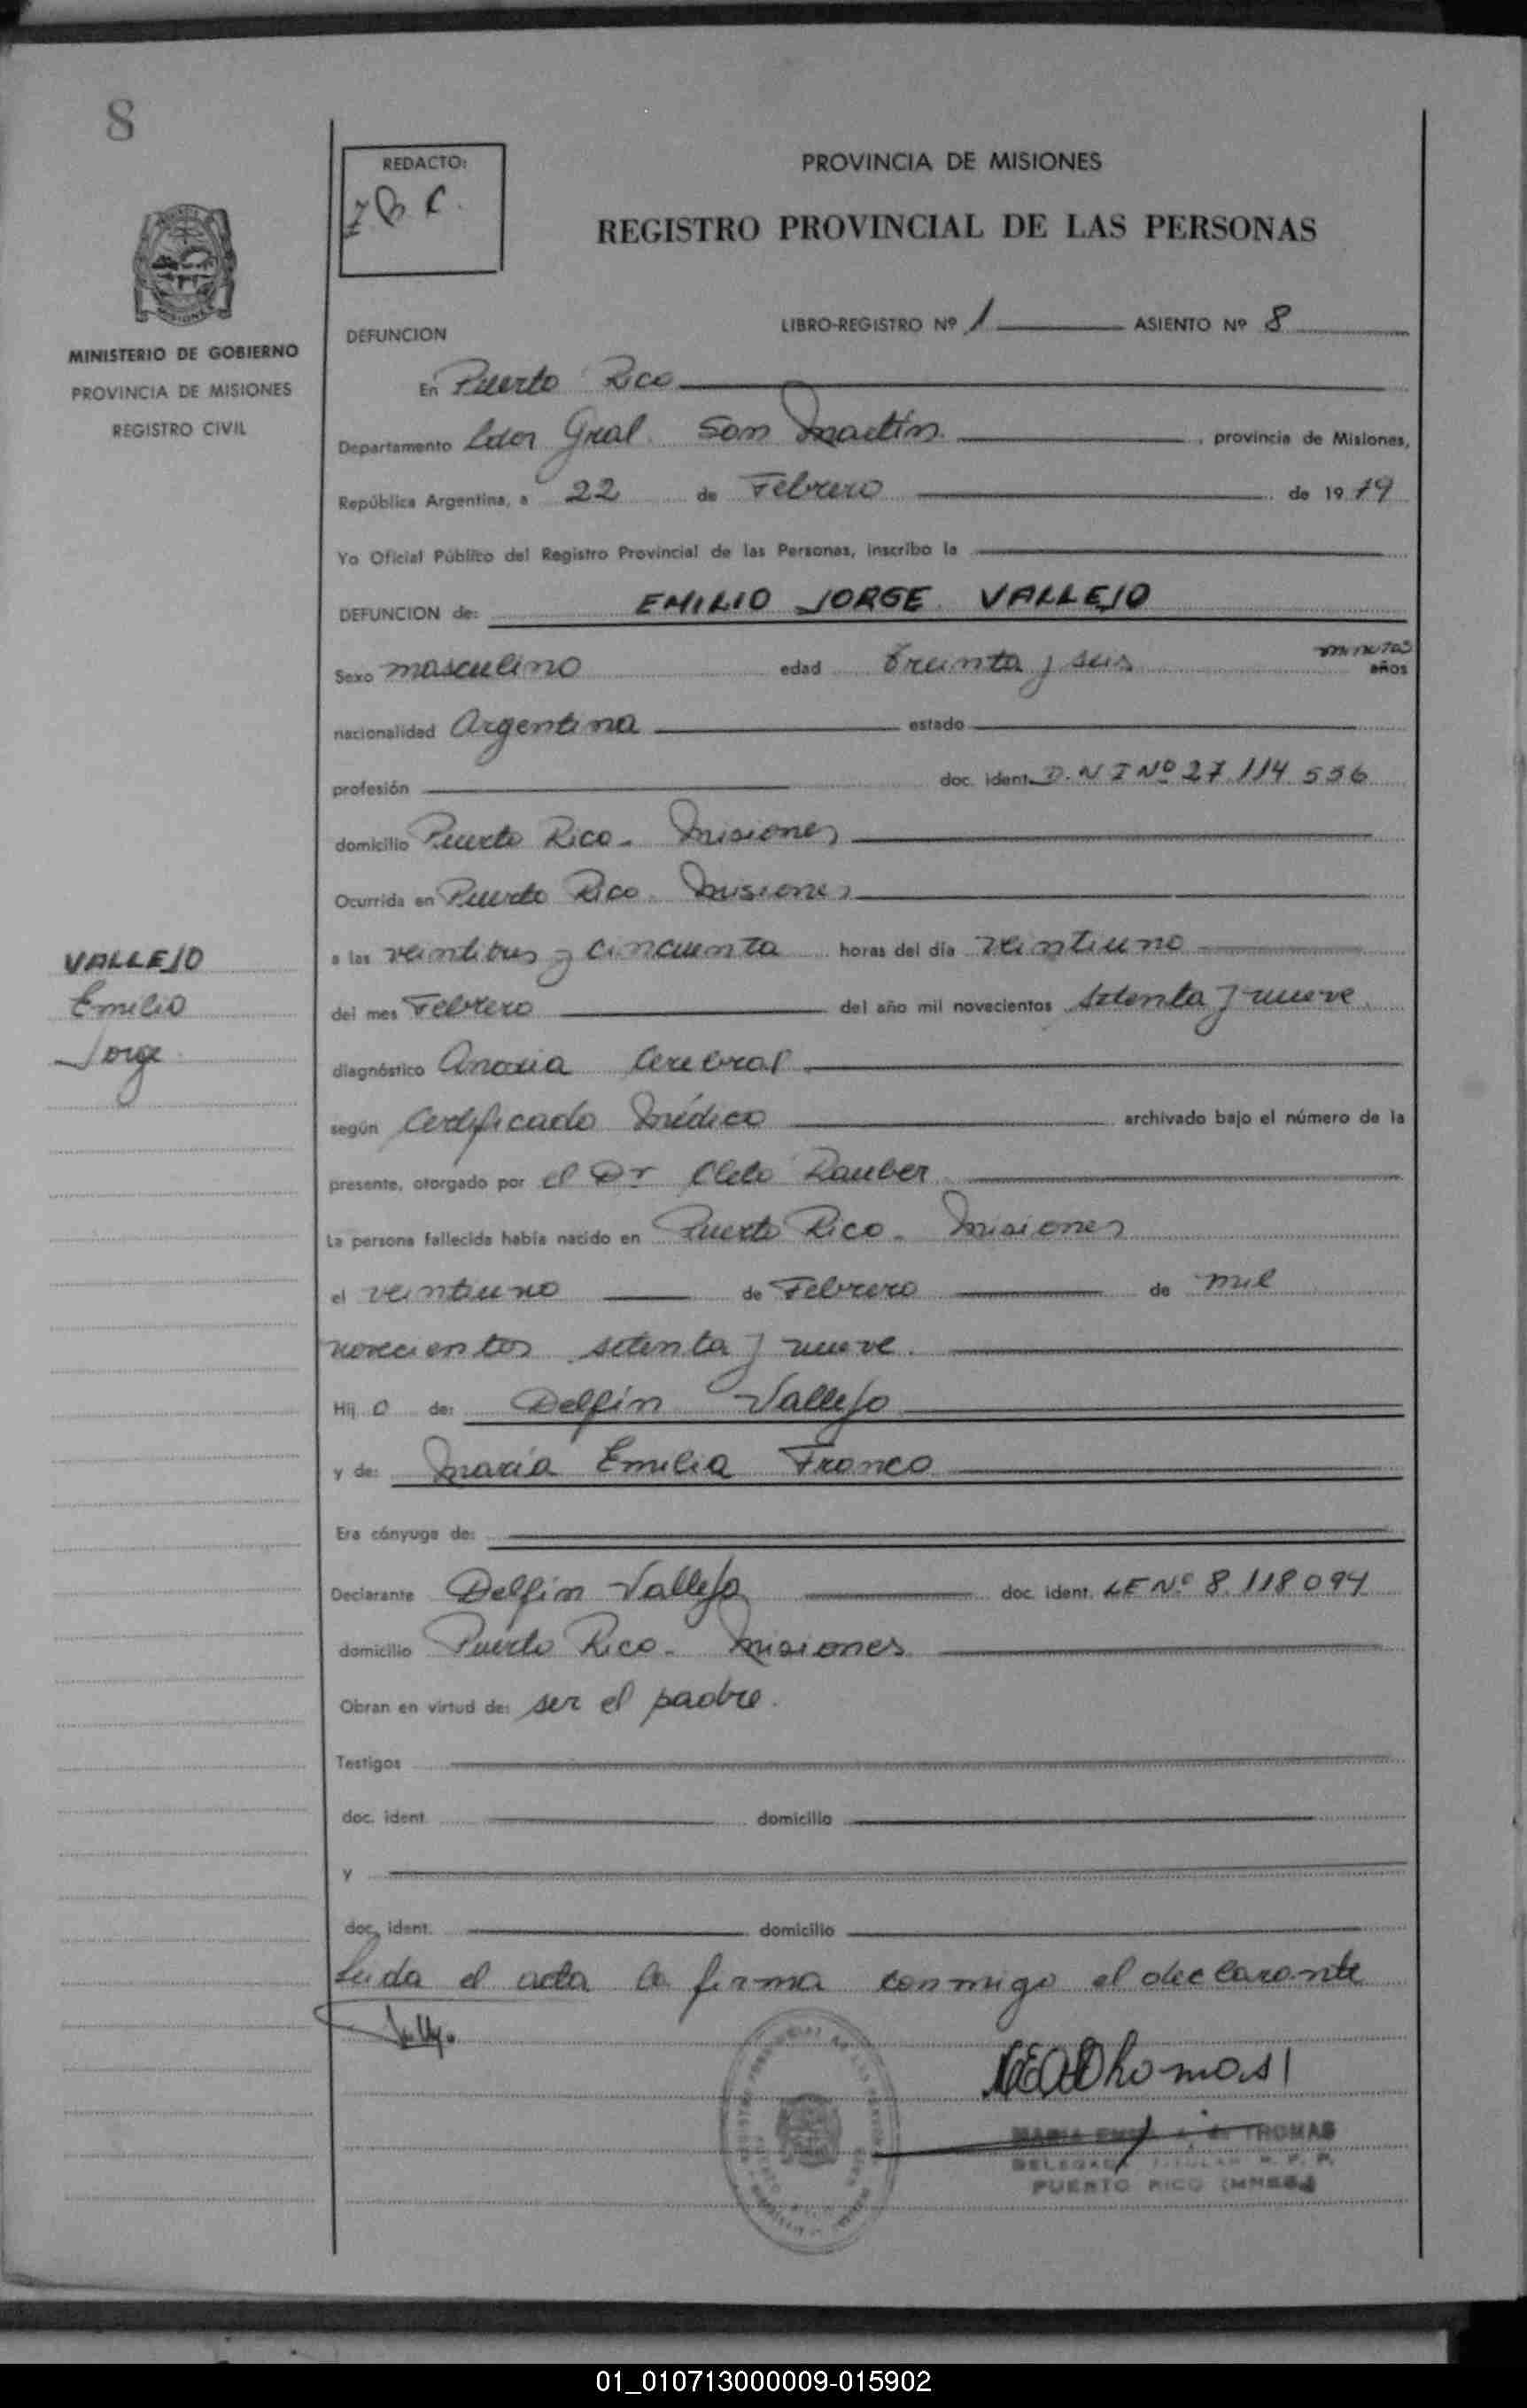 8
REDACTO:
PROVINCIA DE MISIONES
REGISTRO PROVINCIAL DE LAS PERSONAS
MINISTERIO DE GOBIERNO
PROVINCIA DE MISIONES
REGISTRO CIVIL
DEFUNCION
LIBRO-REGISTRO Nº 1 ASIENTO Nº 8
En Puerto Rico
Departamento Ldor Gral. San Martín , provincia de Misiones,
República Argentina, a 22 de Febrero de 1979
Yo Oficial Público del Registro Provincial de las Personas, inscribo la
DEFUNCION de: EMILIO JORGE VALLEJO
Sexo masculino edad treinta y seis minutos años
nacionalidad Argentina estado
profesión doc. ident. D.N I Nº 27.114 536
domicilio Puerto Rico - Misiones
Ocurrida en Puerto Rico - Misiones
VALLEJO
Emilio
Jorge
a las veintitres y cincuenta horas del día veintiuno
del mes Febrero del año mil novecientos setenta y nueve
diagnóstico Anoxia Cerebral
según Certificado Médico archivado bajo el número de la
presente, otorgado por el Dr Cleto Rauber
La persona fallecida había nacido en Puerto Rico - Misiones
el veintiuno de Febrero de mil
novecientos setenta y nueve.
Hij o de: Delfín Vallejo
y de: María Emilia Franco
Era cónyuge de:
Declarante Delfín Vallejo doc. ident. LE Nº 8.118 094
domicilio Puerto Rico - Misiones
Obran en virtud de: ser el padre.
Testigos
doc. ident. domicilio
y
doc. ident. domicilio
Leida el acta la firma conmigo el declarante
THOMAS
PUERTO RICO
01_010713000009-015902